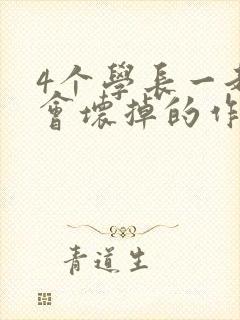 4个學長一
會壞掉的作
青道生